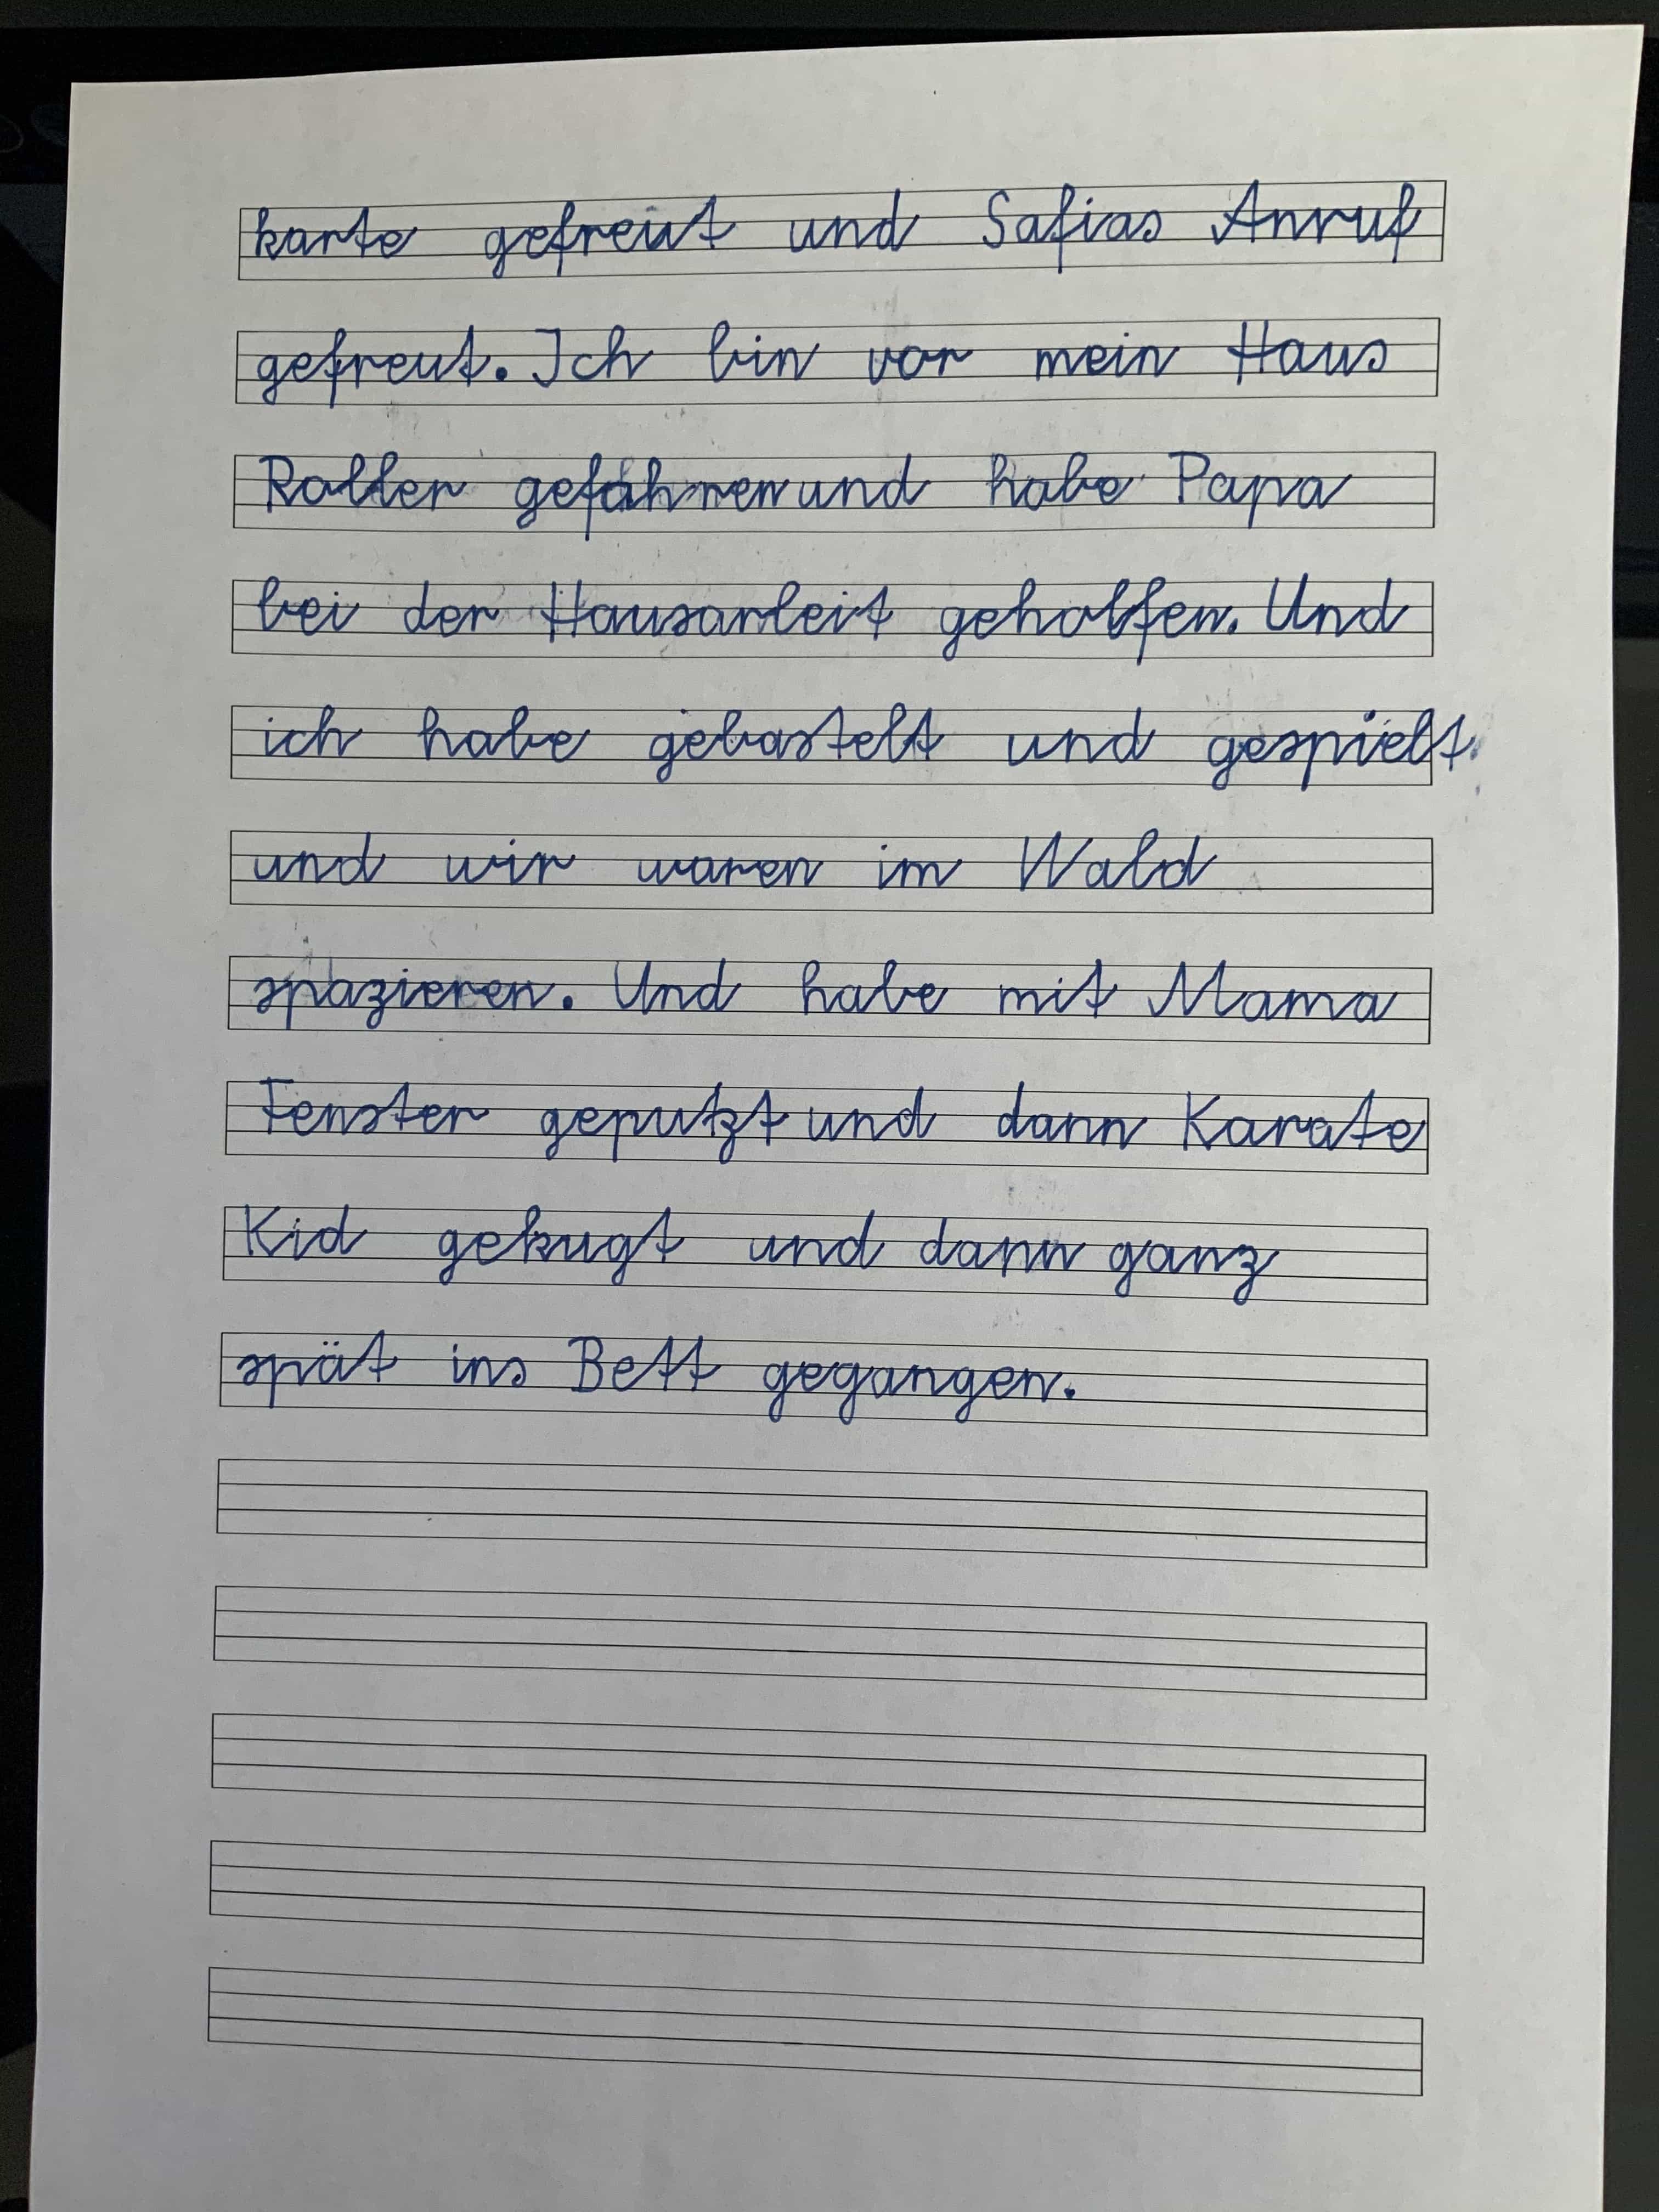 karte gefreut und Safias Anruf
gefreut. Ich bin vor mein Haus
Roller gefahren und habe Papa
bei der Hausarbeit geholfen. Und
ich habe gebastelt und gespielt.
und wir waren im Wald
spazieren. Und habe mit Mama
Fenster geputzt und dann Karate
Kid gekugt und dann ganz
spät ins Bett gegangen.